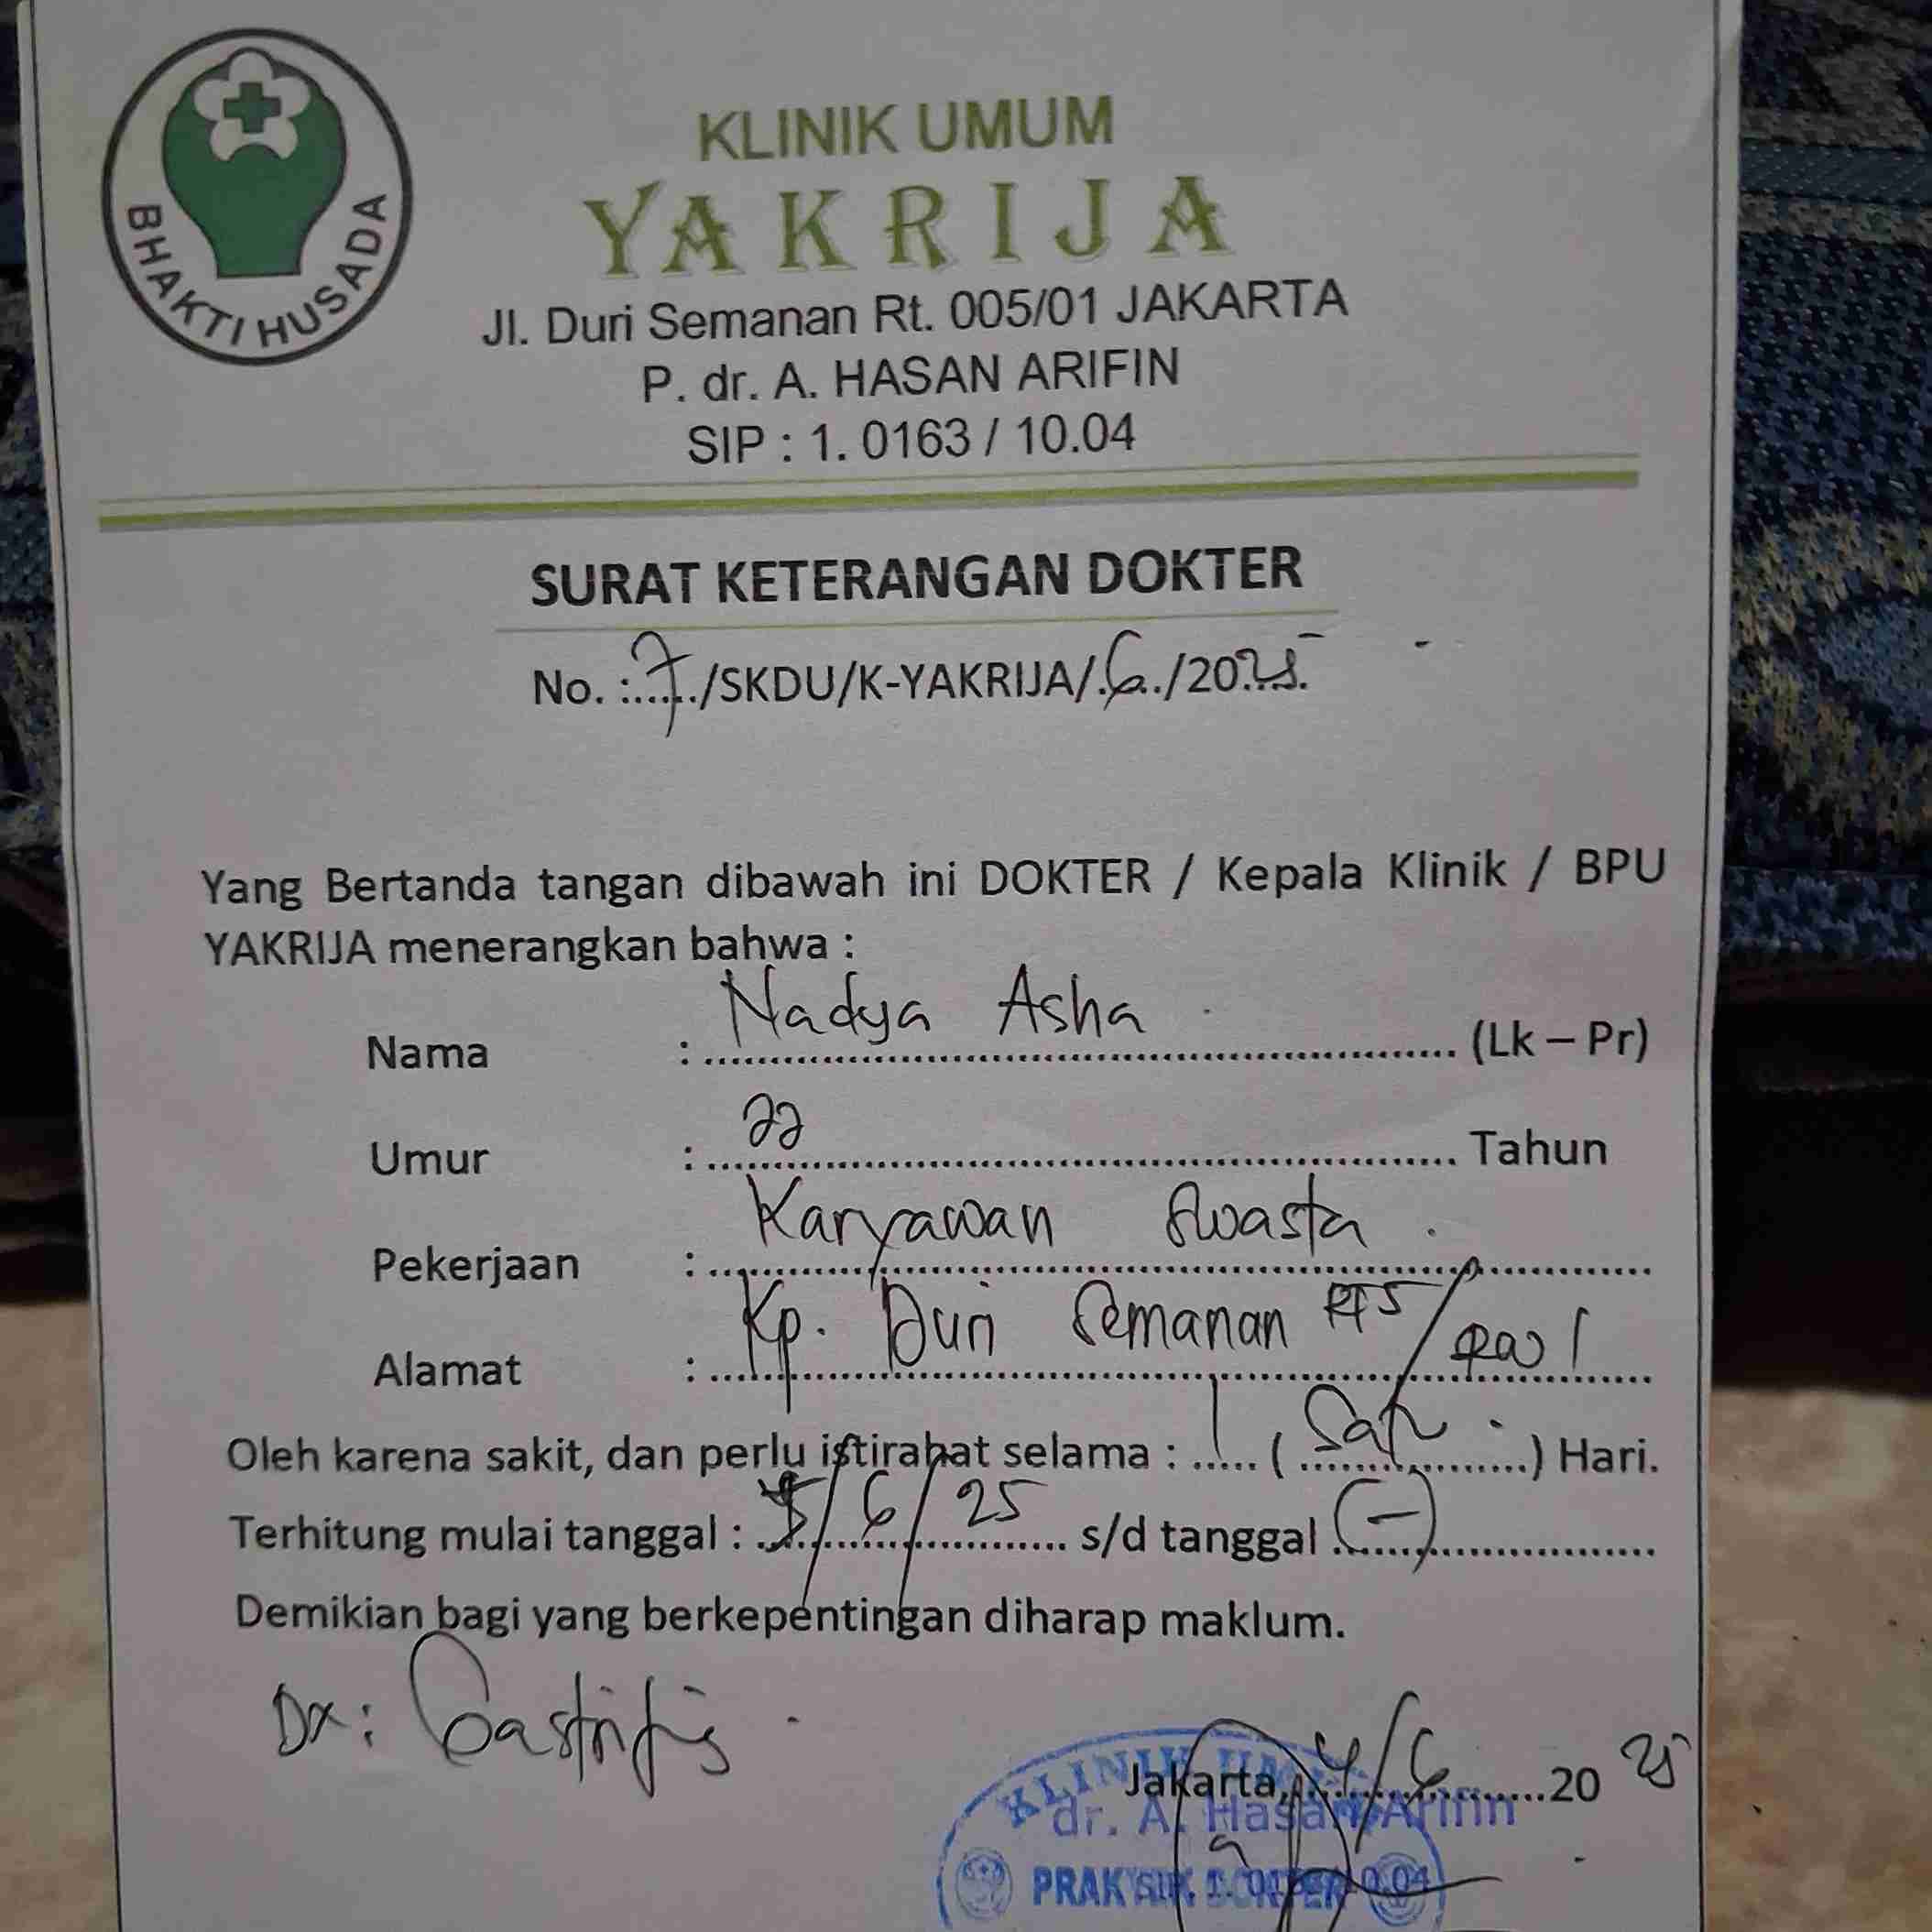 BHAKTI HUSADA
KLINIK UMUM
YAKRIJA
Jl. Duri Semanan Rt. 005/01 JAKARTA
P. dr. A. HASAN ARIFIN
SIP : 1. 0163 / 10.04
SURAT KETERANGAN DOKTER
No. : 7 /SKDU/K-YAKRIJA/ 6 /2025
Yang Bertanda tangan dibawah ini DOKTER / Kepala Klinik / BPU
YAKRIJA menerangkan bahwa :
Nama : Nadya Asha (Lk – Pr)
Umur : 22 Tahun
Pekerjaan : Karyawan Swasta
Alamat : Kp. Duri Semanan RT5/RW1
Oleh karena sakit, dan perlu istirahat selama : 1 ( Satu ) Hari.
Terhitung mulai tanggal : /6/25 s/d tanggal (-)
Demikian bagi yang berkepentingan diharap maklum.
Dx: Gastritis
Jakarta, 4/6 2025
KLINIK
dr. A. Hasan Arifin